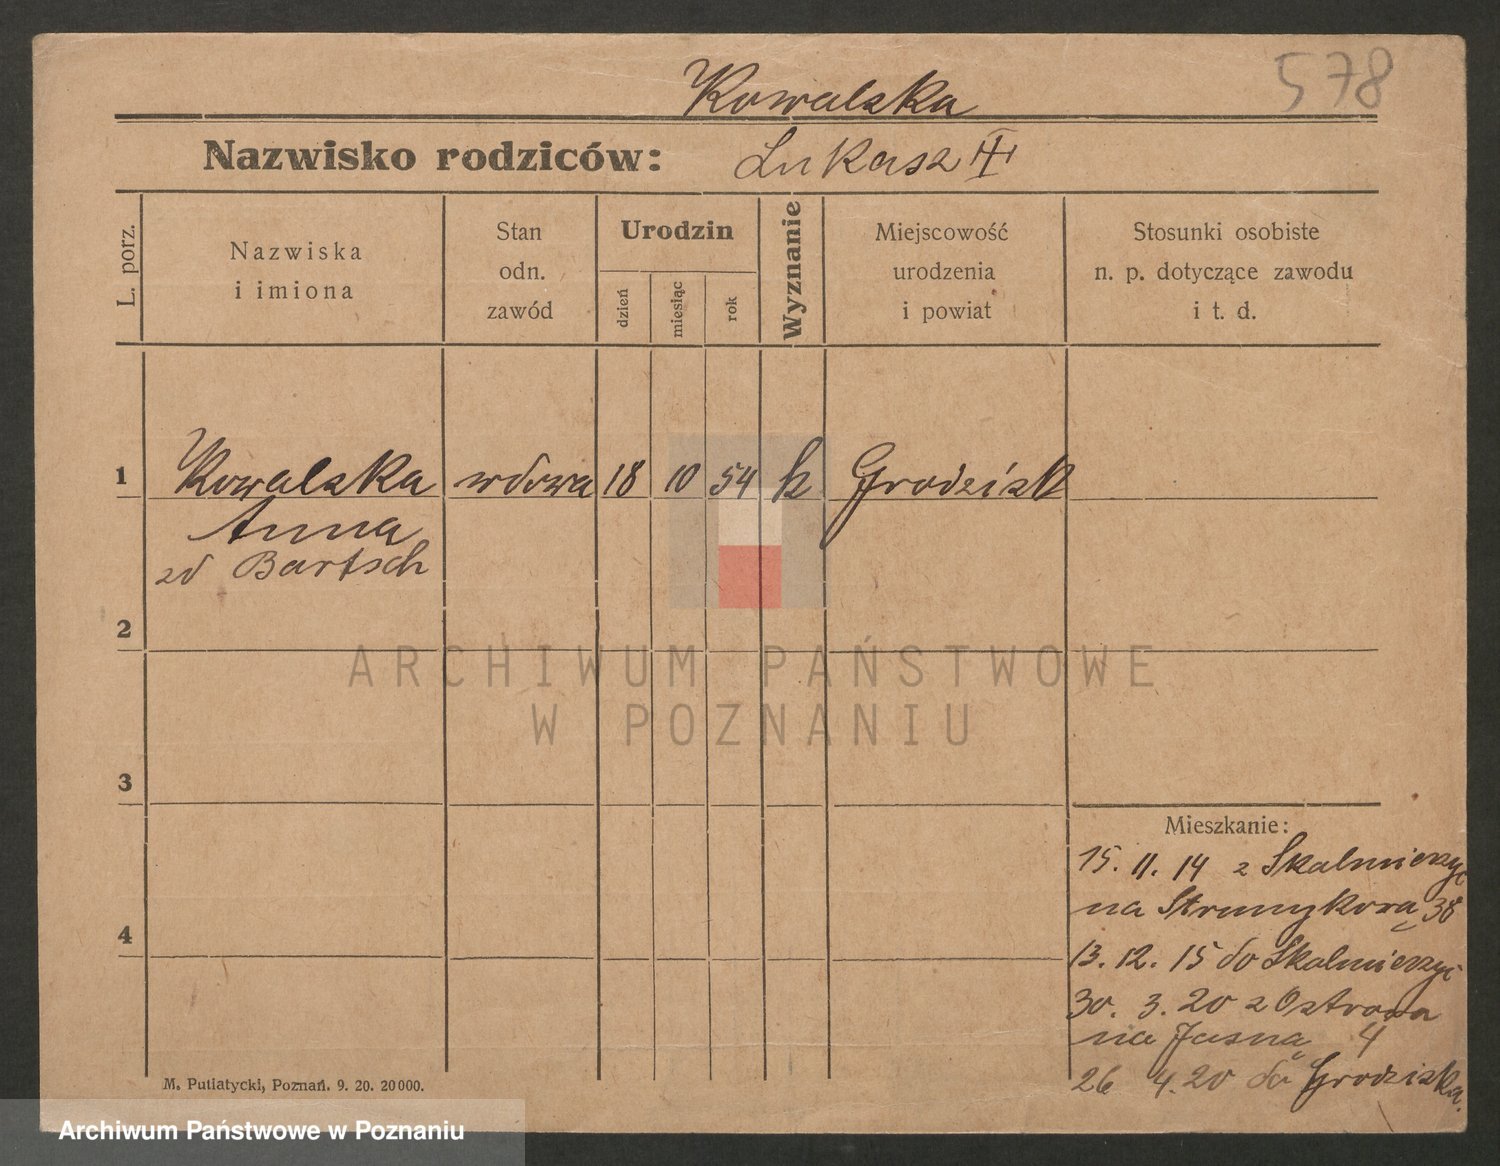 578
Kowalska
Nazwisko rodziców: Lukasz
L. porz.
Nazwiska
i imiona
Stan
odn.
zawód
Urodzin
dzień
miesiąc
rok
Wyznanie
Miejscowość
urodzenia
i powiat
Stosunki osobiste
n. p. dotyczące zawodu
i t. d.
1 Kowalska wdowa 18 10 54 k Grodzisk
Anna
zd Bartsch
2
3
4
Mieszkanie:
15. 11. 14 z Skalmierzyc
na Strumykową 38
13. 12. 15 do Skalmierzyc
30. 3. 20 z Ostrowa
na Jasną 4
26 4. 20 do Grodziska.
M. Putiatycki, Poznań. 9. 20. 20000.
ARCHIWUM PAŃSTWOWE
W POZNANIU
Archiwum Państwowe w Poznaniu